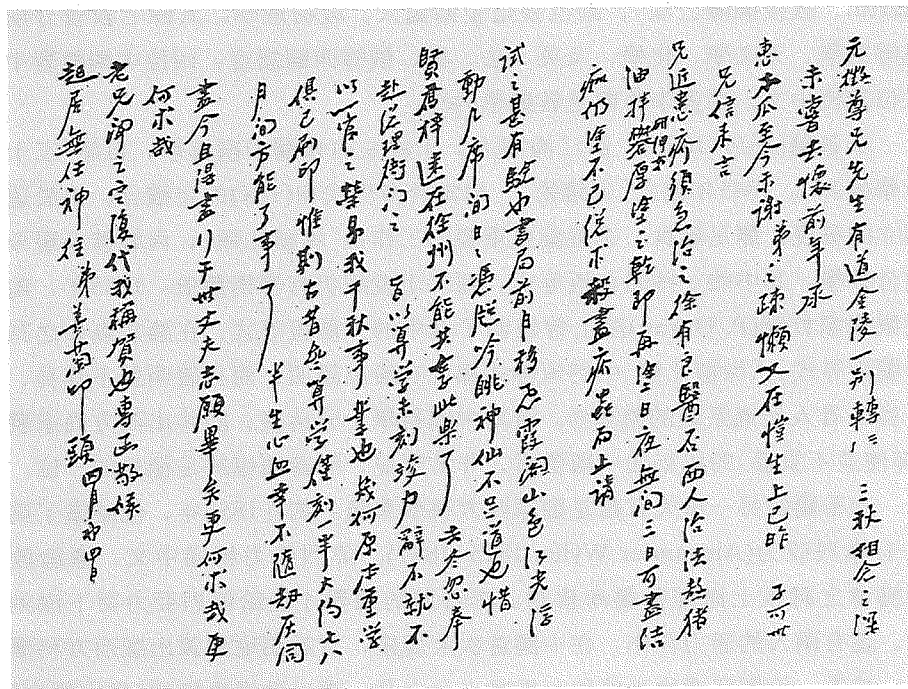 元徵尊兄先生有道金陵一別轉三三秋相念之深
未嘗去懷前年承
惠木瓜至今未謝弟之疎懶又在愷生上已昨 子可世
兄信來言
兄近患疥須急治之徐有良醫否西人治法熬豬
油拌礬研細末厚塗之乾即再塗日夜無間三日可盡結
痂仍塗不已總求殺盡疥蟲而止請
試之甚有驗也書局前月移居霞閣山色江光浮
動几席間日日憑眺吟眺神仙不啻也惜
賢喬梓遠在徐州不能共享此樂了 去冬忽奉
赴總理衙門之 旨以算學未刻竣力辭不就不
以一官之榮易我千秋事業也幾何原本重學
俱已刷印惟則古昔齋算學僅刻一半大約七八
月間方能了事了 半生心血幸不隨劫灰同
盡今且得盡行于世丈夫志願畢矣更何求哉更
何求哉
老兄聞之定廣代我稱賀也專函敬候
起居無任神往 弟善蘭叩頭 四月初四日